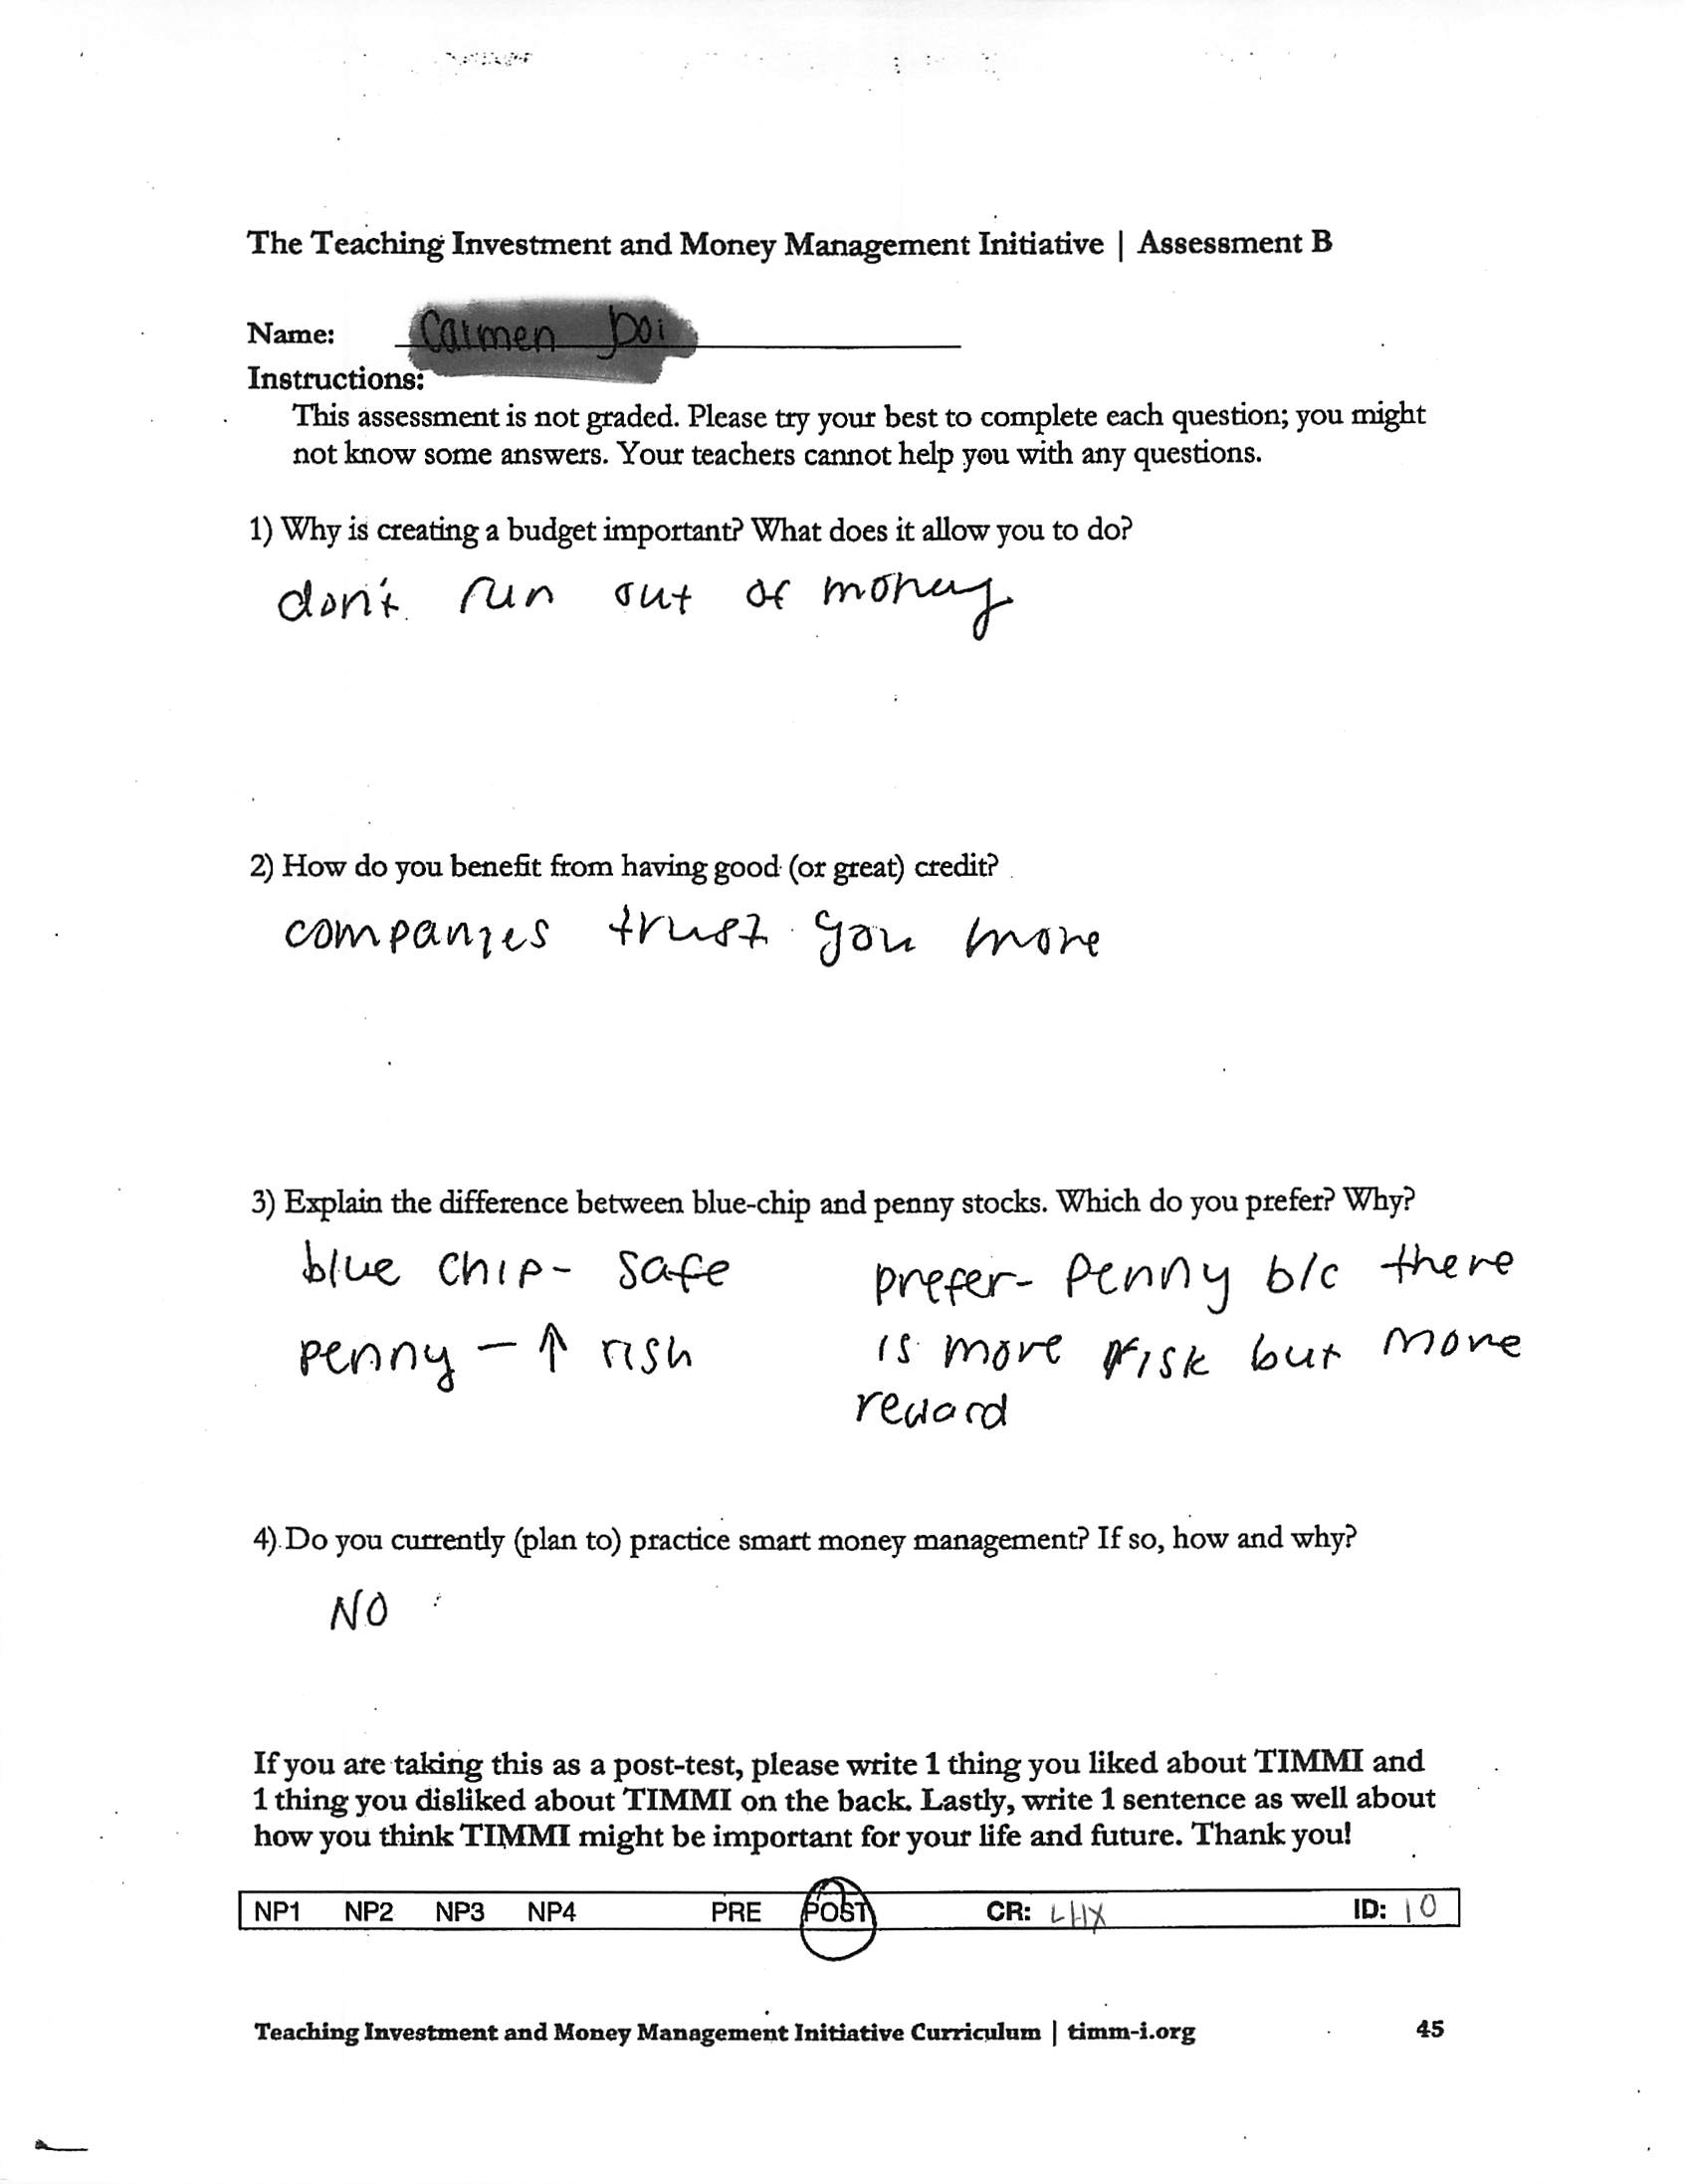 The Teaching Investment and Money Management Initiative | Assessment B
Name:
Instructions:
This assessment is not graded. Please try your best to complete each question; you might
not know some answers. Your teachers cannot help you with any questions.
1) Why is creating a budget important? What does it allow you to do?
don't run out of money
2) How do you benefit from having good (or great) credit?
companies trust you more
3) Explain the difference between blue-chip and penny stocks. Which do you prefer? Why?
blue chip - safe
penny - ↑ risk
prefer - Penny b/c there
is more risk but more
reward
4) Do you currently (plan to) practice smart money management? If so, how and why?
NO
If you are taking this as a post-test, please write 1 thing you liked about TIMMI and
1 thing you disliked about TIMMI on the back. Lastly, write 1 sentence as well about
how you think TIMMI might be important for your life and future. Thank you!
NP1 NP2 NP3 NP4 PRE POST CR: LHX ID: 10
Teaching Investment and Money Management Initiative Curriculum | timm-i.org 45